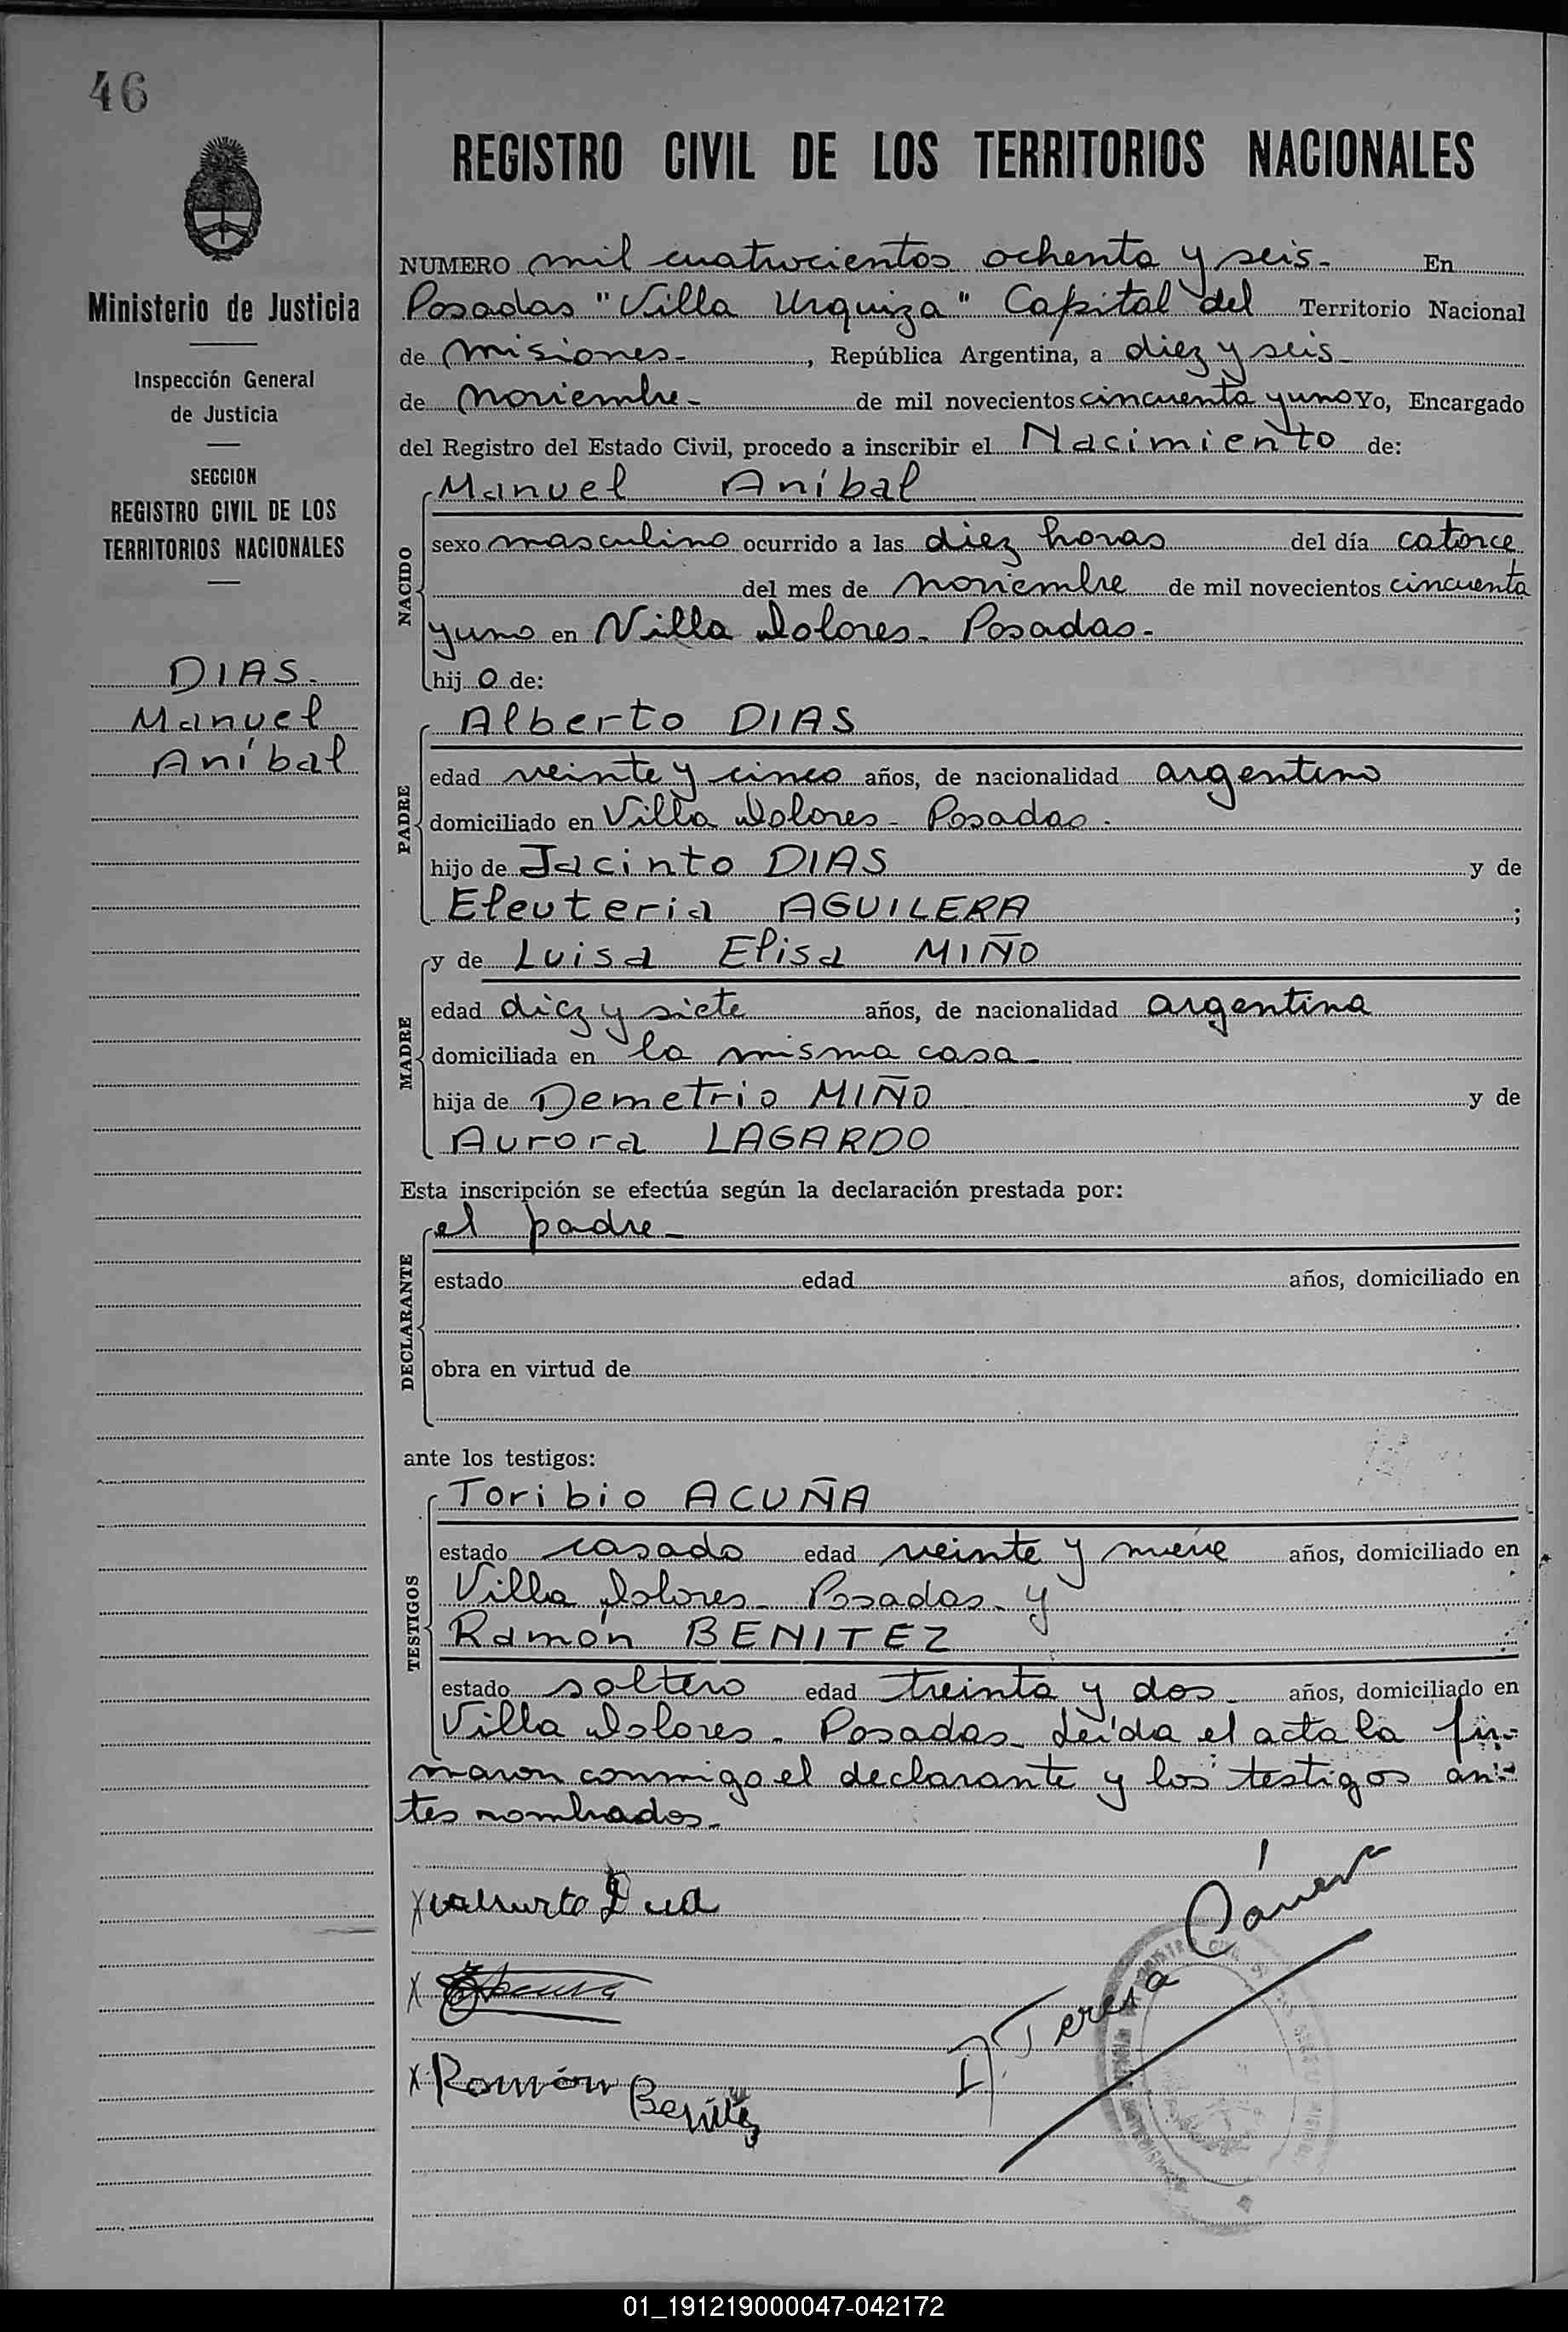 46
Ministerio de Justicia
Inspección General
de Justicia
SECCION
REGISTRO CIVIL DE LOS
TERRITORIOS NACIONALES
DIAS.
Manuel
Aníbal
REGISTRO CIVIL DE LOS TERRITORIOS NACIONALES
NUMERO mil cuatrocientos ochenta y seis- En
Posadas "Villa Urquiza" Capital del Territorio Nacional
de Misiones-, República Argentina, a diez y seis-
de Noviembre- de mil novecientos cincuenta y uno Yo, Encargado
del Registro del Estado Civil, procedo a inscribir el Nacimiento de:
Manuel Aníbal
NACIDO
sexo masculino ocurrido a las diez horas del día catorce
del mes de noviembre de mil novecientos cincuenta
y uno en Villa Dolores- Posadas-
hijo de:
Alberto DIAS
PADRE
edad veinte y cinco años, de nacionalidad argentino
domiciliado en Villa Dolores- Posadas.
hijo de Jacinto DIAS y de
Eleuteria AGUILERA ;
y de Luisa Elisa MIÑO
MADRE
edad diez y siete años, de nacionalidad argentina
domiciliada en la misma casa-
hija de Demetrio MIÑO y de
Aurora LAGARDO
Esta inscripción se efectúa según la declaración prestada por:
el padre-
DECLARANTE
estado edad años, domiciliado en
obra en virtud de
ante los testigos:
Toribio ACUÑA
TESTIGOS
estado casado edad veinte y nueve años, domiciliado en
Villa Dolores- Posadas- y
Ramón BENITEZ
estado soltero edad treinta y dos- años, domiciliado en
Villa Dolores- Posadas- Leída el acta la fir-
maron conmigo el declarante y los testigos an-
tes nombrados-
X
X
X Ramón Benítez
Teresa
01_191219000047-042172